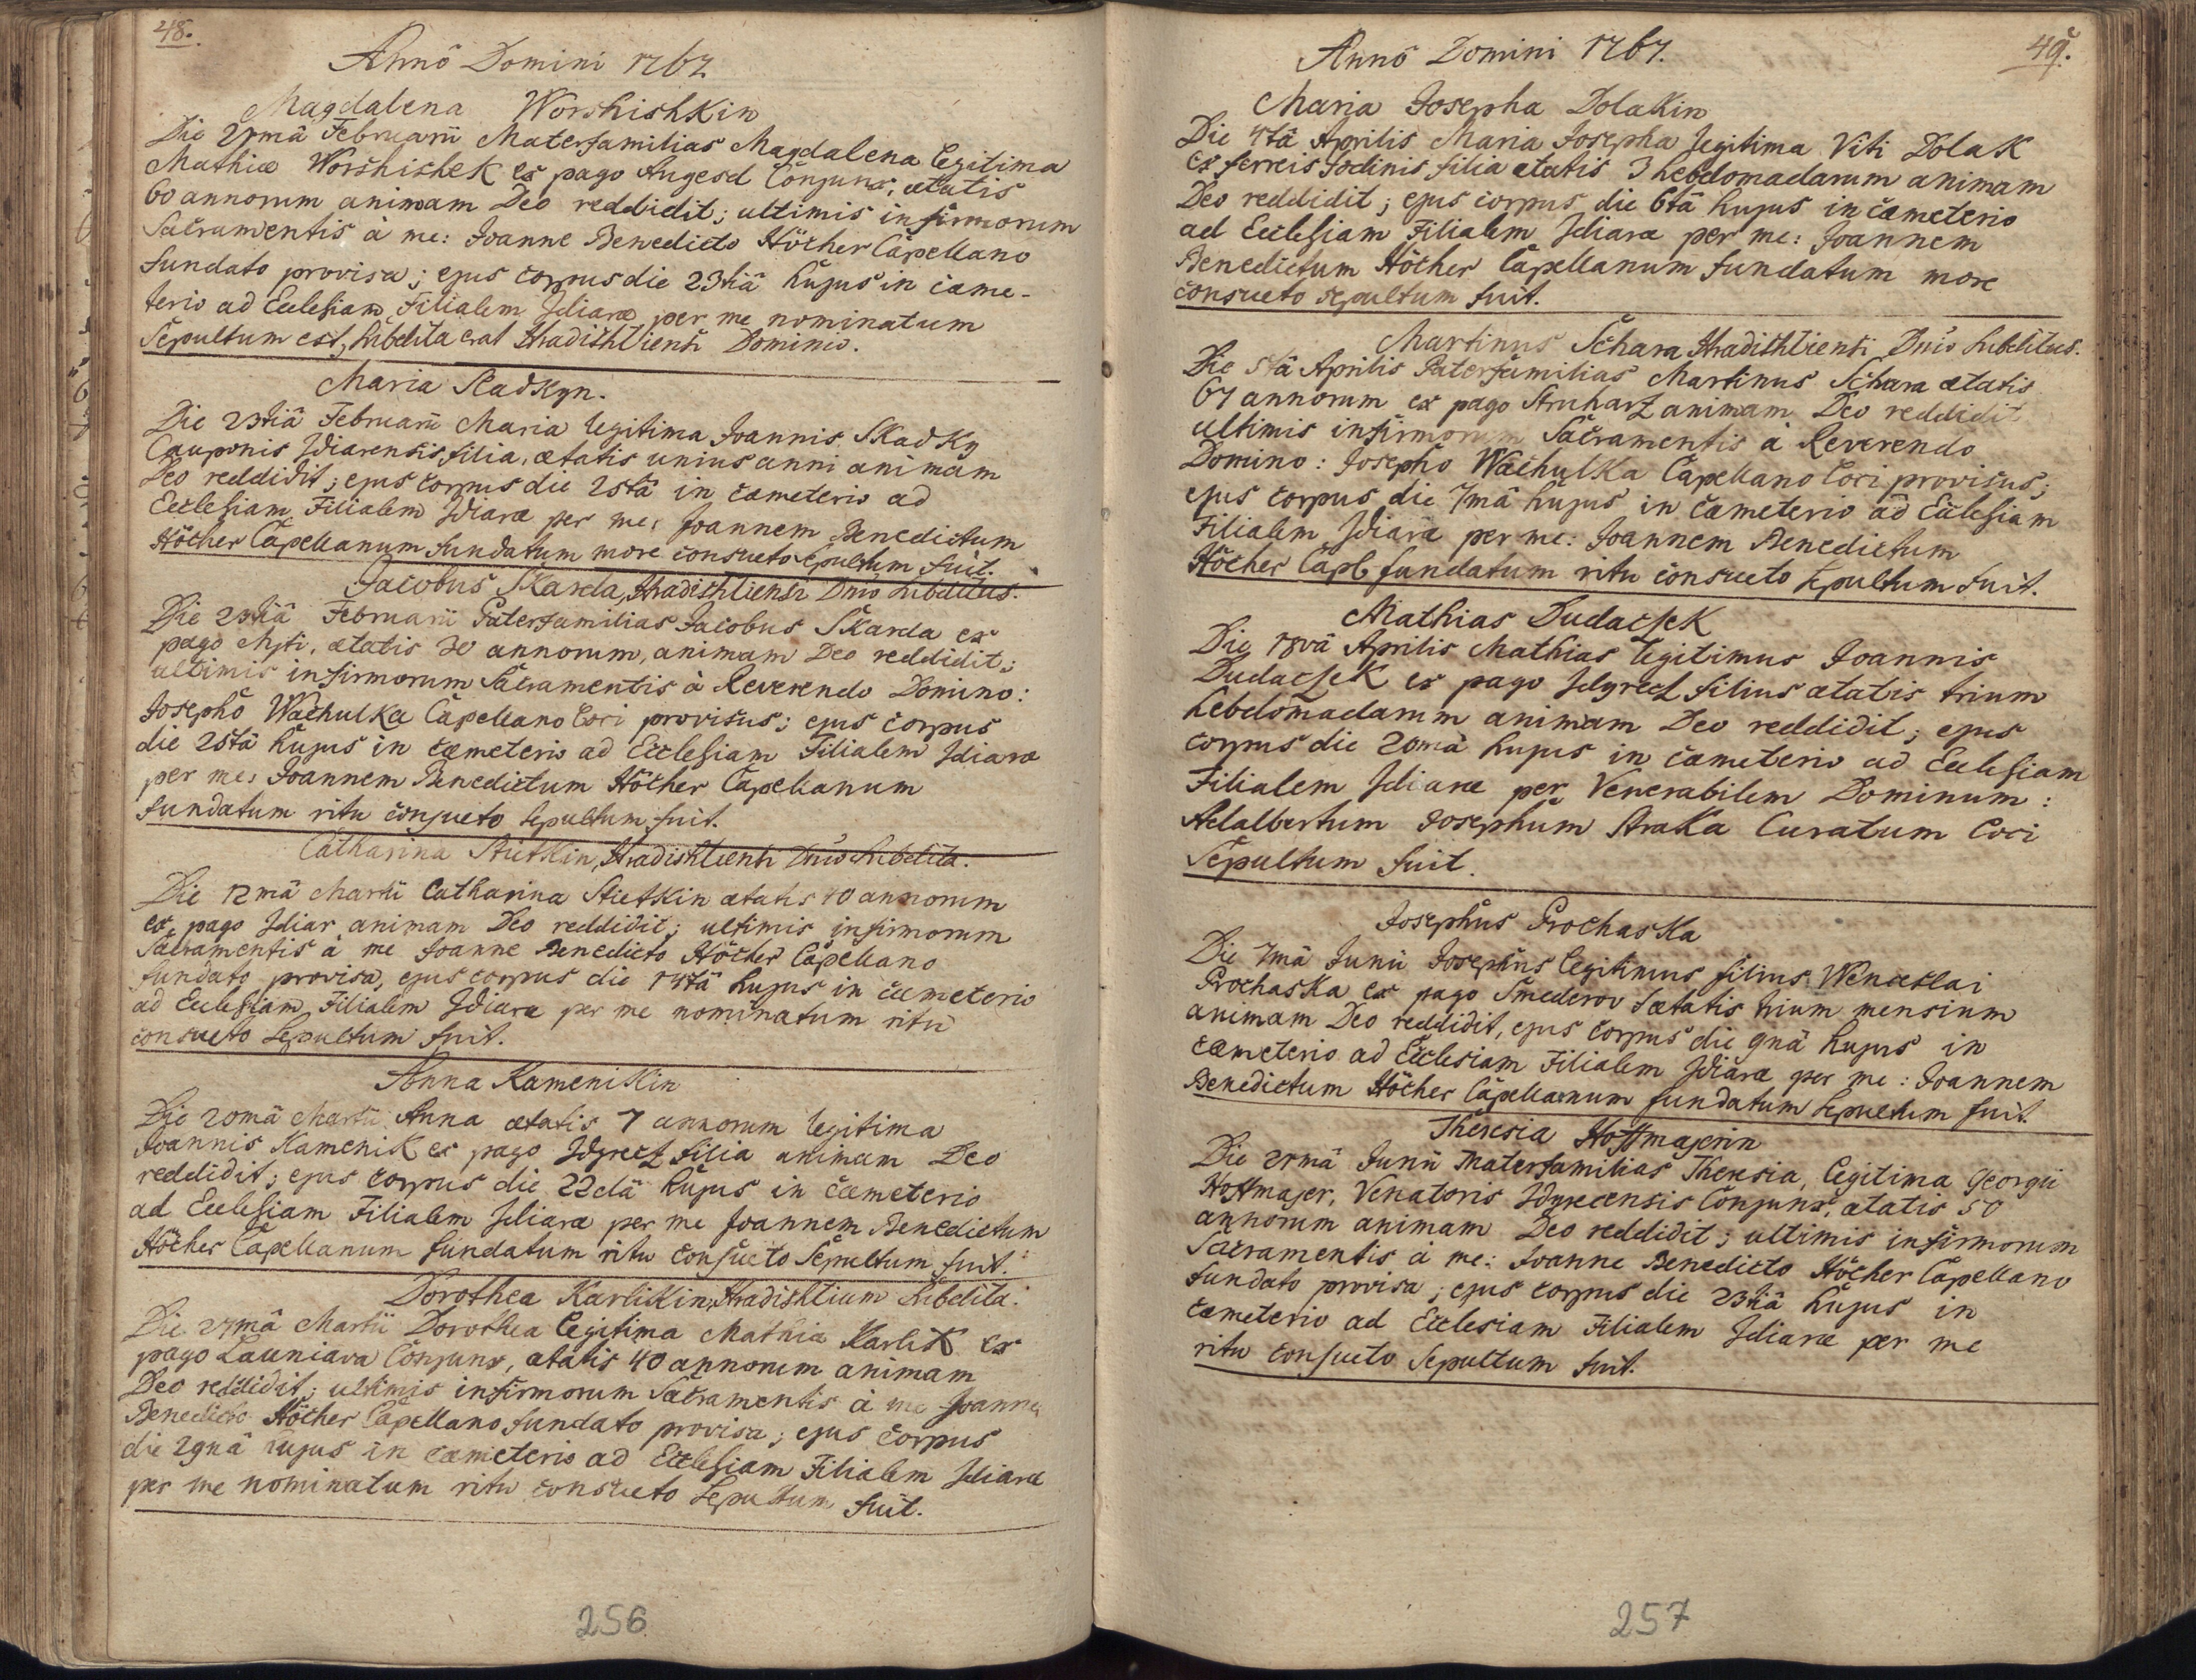 48.
Annô Domini 1767
Magdalena Worshishkin
Die 21mâ Februarii Materfamilias Magdalena legitima
Mathiæ Worshishek ex pago Augesd Conjunx, ætatis
60 annorum animam Deo reddidit; ultimis infirmorum
Sacramentis à me: Joanne Benedicto Höcher Capellano
fundato provisa; ejus corpus die 23tiâ hujus in cæme-
terio ad Ecclesiam Filialem Zdiaræ per me nominatum
Sepultum est, subdita erat Hradishtiensi Dominio.
Maria Skadkyn.
Die 23tiâ Februarii Maria legitima Joannis Skadky
Cauponis Zdiarensis filia, ætatis unius anni animam
Deo reddidit; ejus corpus die 25tâ in cæmeterio ad
Ecclesiam Filialem Zdiaræ per me: Joannem Benedictum
Höcher Capellanum fundatum more consueto sepultum fuit.
Jacobus Skarda, Hradishtiensi Dnio subditus.
Die 23tiâ Februarii Paterfamilias Jacobus Skarda ex
pago Myti, ætatis 30 annorum, animam Deo reddidit;
ultimis infirmorum Sacramentis à Reverendo Domino:
Josepho Wachulka Capellano Loci provisus; ejus corpus
die 25tâ hujus in cæmeterio ad Ecclesiam Filialem Zdiaræ
per me: Joannem Benedictum Höcher Capellanum
fundatum ritu consueto sepultum fuit.
Catharina Stietkin, Hradishtiensi Dnio subdita.
Die 12mâ Martii Catharina Stietkin ætatis 40 annorum
ex pago Zdiar animam Deo reddidit; ultimis infirmorum
Sacramentis à me Joanne Benedicto Höcher Capellano
fundato provisa, ejus corpus die 14tâ hujus in cæmeterio
ad Ecclesiam Filialem Zdiaræ per me nominatum ritu
consueto sepultum fuit.
Anna Kamenikin
Die 20mâ Martii Anna ætatis 7 annorum legitima
Joannis Kamenik ex pago Zdyretz filia animam Deo
reddidit; ejus corpus die 22dâ hujus in cæmeterio
ad Ecclesiam Filialem Zdiaræ per me Joannem Benedictum
Höcher Capellanum fundatum ritu consueto Sepultum fuit.
Dorothea Karlikin, Hradishtium subdita.
Die 27mâ Martii Dorothea legitima Mathiæ Karlik ex
pago Launiava Conjunx, ætatis 40 annorum animam
Deo reddidit; ultimis infirmorum Sacramentis à me Joanne
Benedicto Höcher Capellano fundato provisa; ejus corpus
die 29nâ hujus in cæmeterio ad Ecclesiam Filialem Zdiaræ
per me nominatum ritu consueto sepultum fuit.
256
49.
Annô Domini 1767.
Maria Josepha Dolakin
Die 4tâ Aprilis Maria Josepha legitima Viti Dolak
ex ferreis fodinis filia ætatis 3 hebdomadarum animam
Deo reddidit; ejus corpus die 6tâ hujus in cæmeterio
ad Ecclesiam Filialem Zdiaræ per me: Joannem
Benedictum Höcher Capellanum fundatum more
consueto sepultum fuit.
Martinus Schara Hradishtiensi Dnio subditus.
Die 5tâ Aprilis Paterfamilias Martinus Schara ætatis
67 annorum ex pago Struhartz animam Deo reddidit
ultimis infirmorum Sacramentis à Reverendo
Domino: Josepho Wachulka Capellano Loci provisus;
ejus corpus die 7mâ hujus in cæmeterio ad Ecclesiam
Filialem Zdiaræ per me: Joannem Benedictum
Höcher Capl fundatum ritu consueto sepultum fuit.
Mathias Dudaczek
Die 18vâ Aprilis Mathias legitimus Joannis
Dudaczek ex pago Zdyretz filius ætatis trium
hebdomadarum animam Deo reddidit; ejus
corpus die 20mâ hujus in cæmeterio ad Ecclesiam
Filialem Zdiaræ per Venerabilem Dominum:
Adalbertum Josephum Straka Curatum Loci
Sepultum fuit.
Josephus Prochaska
Die 7mâ Junii Josephus legitimus filius Wenceslai
Prochaska ex pago Smederov ætatis trium mensium
animam Deo reddidit, ejus corpus die 9nâ hujus in
cæmeterio ad Ecclesiam Filialem Zdiaræ per me: Joannem
Benedictum Höcher Capellanum fundatum sepultum fuit.
Theresia Hoffmajerin
Die 21mâ Junii Materfamilias Theresia, legitima Georgii
Hoffmajer, Venatoris Zdyrecensis Conjunx, ætatis 50
annorum animam Deo reddidit; ultimis infirmorum
Sacramentis à me: Joanne Benedicto Höcher Capellano
fundato provisa; ejus corpus die 23tiâ hujus in
cæmeterio ad Ecclesiam Filialem Zdiaræ per me
ritu consueto Sepultum fuit.
257